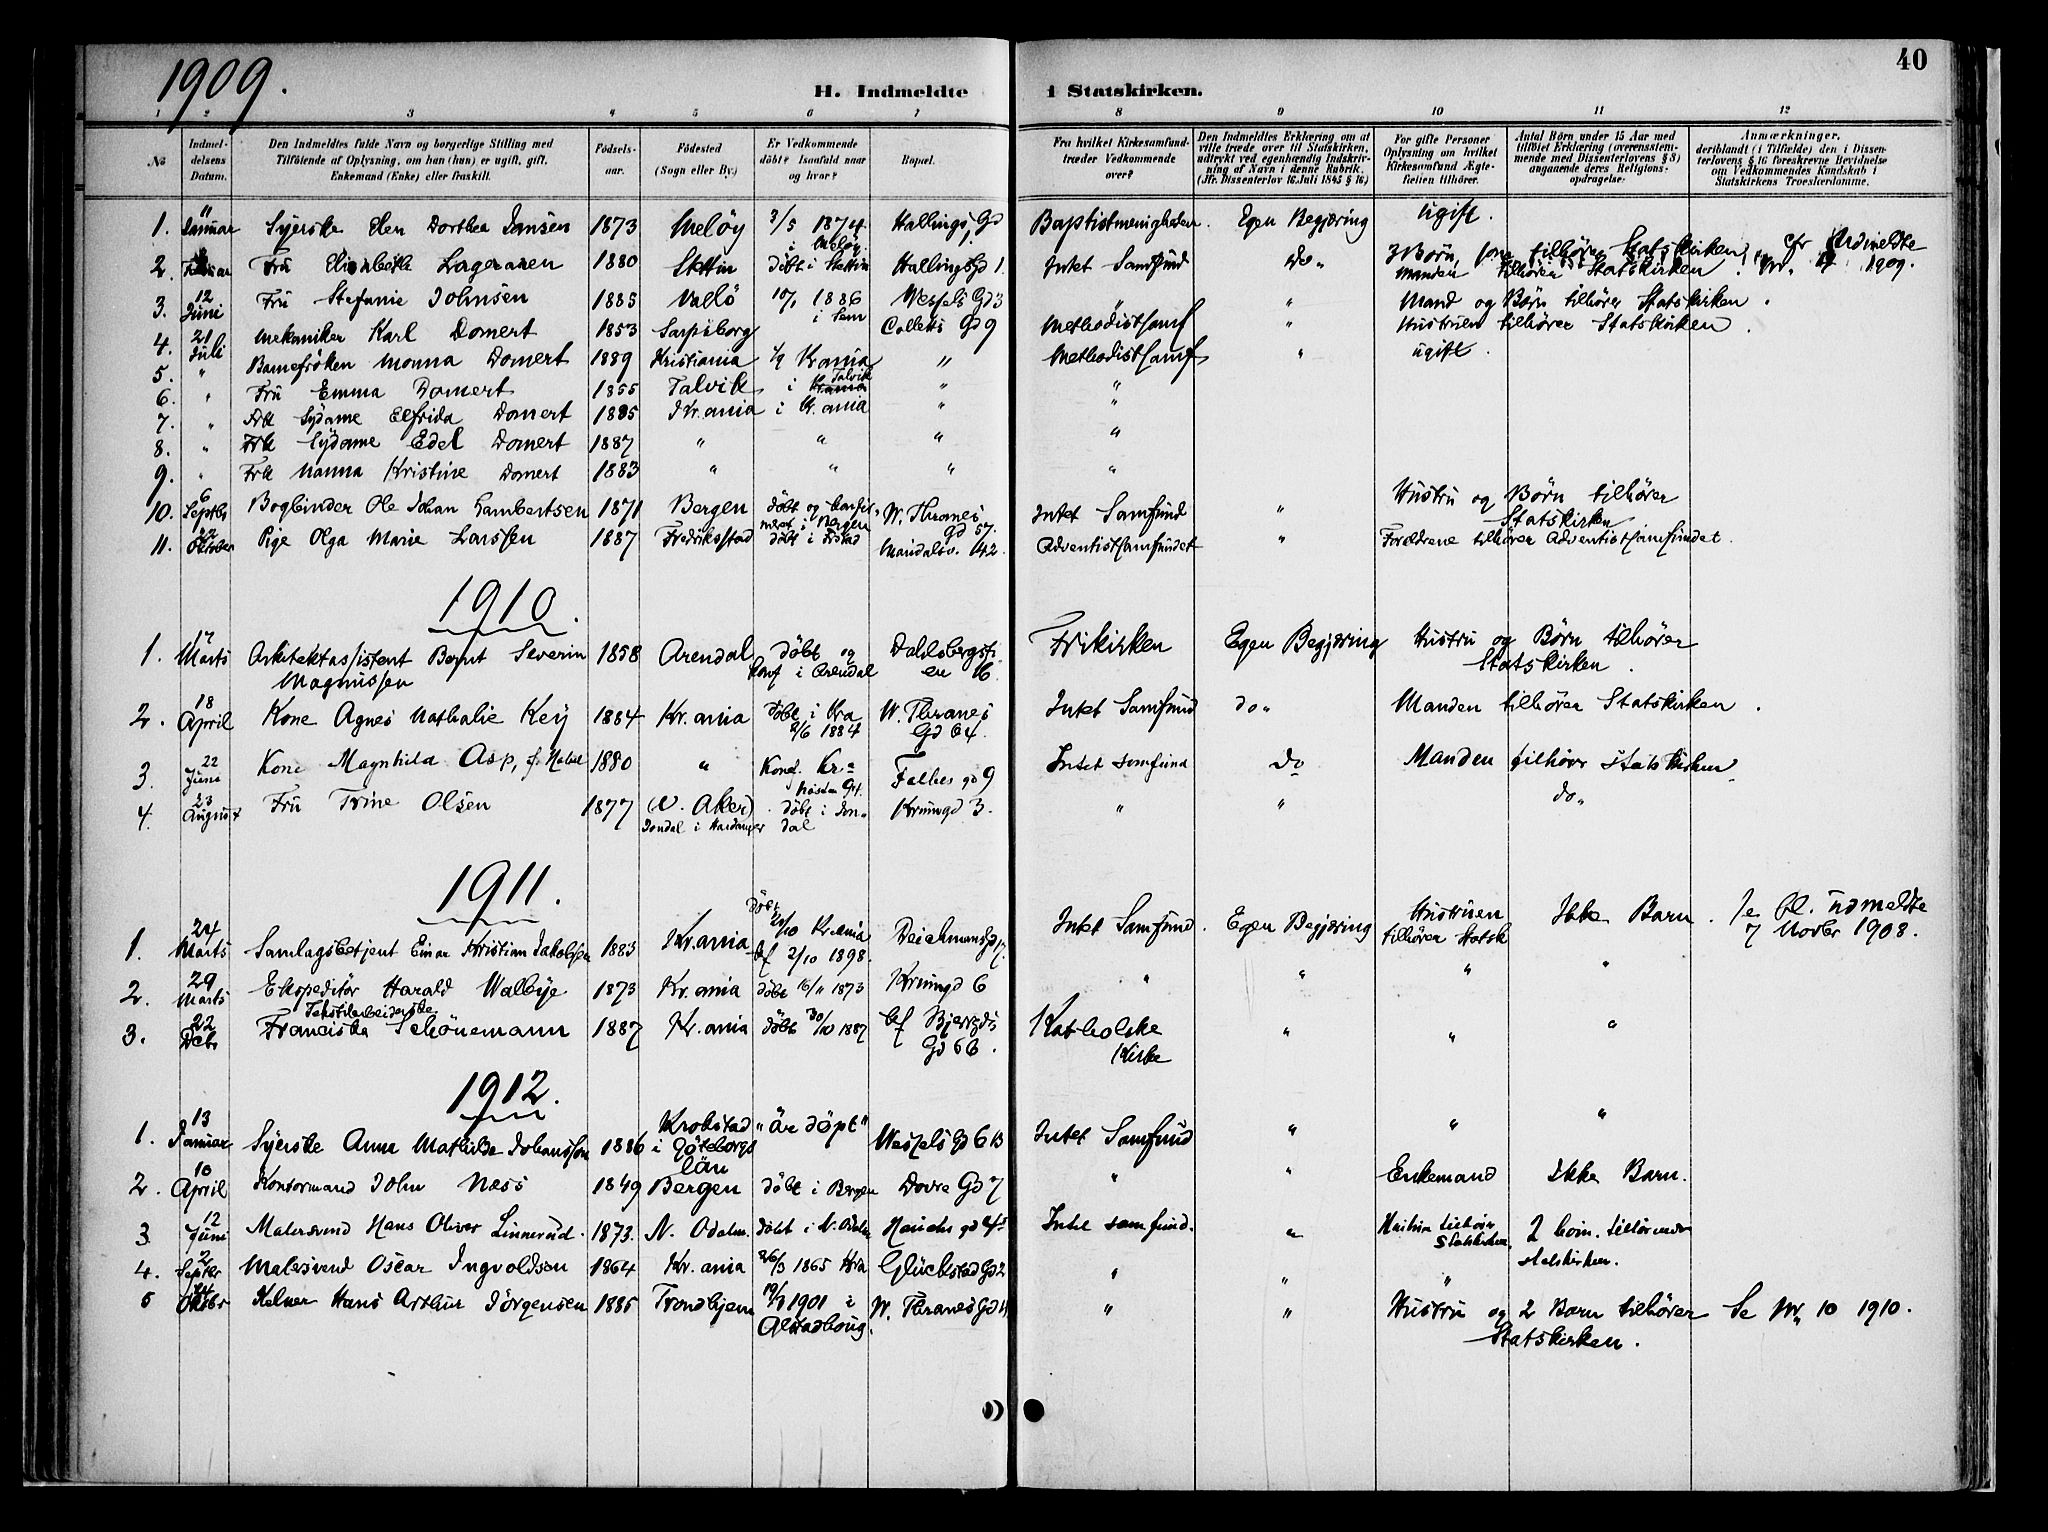 1909.
40
H. Indmeldte i Statskirken.
1 2 3 4 5 6 7 8 9 10 11 12
No
Indmeldelsens Datum.
Den Indmeldtes fulde Navn og borgerlige Stilling med Tilføiende af Oplysning, om han (hun) er ugift, gift, Enkemand (Enke) eller fraskilt.
Fødselsaar.
Fødested (Sogn eller By.)
Er Vedkommende døbt? Isaafald naar og hvor?
Bopæl.
Fra hvilket Kirkesamfund træder Vedkommende over?
Den Indmeldtes Erklæring om at ville træde over til Statskirken, udtrykt ved egenhændig Indskrivning af Navn i denne Rubrik. (Jfr. Dissenterlov 16. Juli 1845 § 16)
For gifte Personer Oplysning om hvilket Kirkesamfund Ægtefællen tilhører.
Antal Børn under 15 Aar med tilføiet Erklæring (overensstemmende med Dissenterlovens § 8) angaaende deres Religionsopdragelse.
Anmærkninger, deriblandt (i Tilfælde) den i Dissenterlovens § 16 foreskrevne Bevidnelse om Vedkommendes Kundskab i Statskirkens Troeslærdomme.
1. 11 Januar Syerske Elen Dorthea Jansen 1873 Meløy 3/5 1874 i Meløy. Hallings Gd 1 Baptistmenigheden. Egen Begjæring ugift.
2. Fru Elisabeth 1880 Stettin døbt i Stettin Hallings Gd 1. Intet Samfund do„ 3 Børn, tilhører Statskirken Manden tilhører Statskirken. cfr Udmeldte 1909.
3. 12 Juni Fru Stefanie Johnsen 1885 Vallø 10/1 1886 i Sem Wessels Gd 3 " " Mand og Børn tilhører Statskirken.
4. 21 Juli Mekaniker Karl Domert 1853 Sarpsborg Colletts Gd 9 Methodistsamf " Hustruen tilhører Statskirken.
5. " Barnefrøken Monna Domert 1889 Kristiania Kr.ania " Methodistsamf " ugift.
6. " Fru Emma Domert 1855 Talvik i Talvik " "
7. " Frk Sydame Elfrida Domert 1885 Kr.ania i Kr.ania " "
8. " Frk Sydame Edel Domert 1887 " " " "
9. " Frk Nanna Kristine Domert 1883 " " " "
10. 6 Septbr Bogbinder Ole Johan Lambertsen 1871 Bergen døbt og konfirmeret i Bergen W. Thranes Gd 57. Intet Samfund " Hustru og Børn tilhører Statskirken
11. 22 Oktober Pige Olga Marie Larssen 1887 Fredriksstad døbt i Frstad Maridalsv. 42. Adventistsamfundet " Forældrene tilhører Adventistsamfundet.
1910.
1. 17 Marts Arkitektassistent Bernt Severin Magnussen 1858 Arendal døbt og konf i Arendal Dahlsbergstien 16. Frikirken Egen Begjæring Hustru og Børn tilhører Statskirken.
2. 18 April Kone Agnes Nathalie Key 1884 Kr.ania døbt i Kra 2/6 1884 W. Thranes Gd 64. Intet Samfund do„ Manden tilhører Statskirken.
3. 22 Juni Kone Magnhild Asp, f. 1880 " Konf. Kr.a Falbes gd 9 Intet samfund do Manden tilhører Statskirken.
4. 23 August Fru Trine Olsen 1877 (V. Aker) Jondal i Hardanger døbt i Jondal Krumgd 3. " " do„
1911.
1. 24 Marts Samlagsbetjent Einar Kristian Jakobsen 1883 Kr.ania døbt 28/10 Kr.ania kf 2/10 1898. Deichmansgd 17. Intet Samfund. Egen Begjæring Hustruen tilhører Statsk Ikke Barn. Se bl. Udmeldte 7 Novbr 1908.
2. 29 Marts Ekspeditør Harald Walbye 1873 Kr.ania døbt 16/11 1873 Krumgd 6 " " " "
3. 22 Dcbr Tekstilarbeiderske Franciska Schønemann 1887 Kr.ania døbt 30/10 1887 Bjerregds Gd 6 B. Katholske Kirke " " "
1912.
1. 13 Januar Syerske Anna Mathilda Johansson 1886 Krokstad i Göteborgs län "är döpt" Wessels Gd 6 B Intet Samfund " " "
2. 10 April Kontormand John Næss 1849 Bergen døbt i Bergen Dovre Gd 7 " " Enkemand Ikke Barn.
3 12 Juni Malersvend Hans Oliver Linnerud. 1873. N. Odalen. døbt i N. Odalen gd 45 Intet samfund. " Hustru tilhører Statskirken. 2 barn. tilhørende statskirken.
4. 2 Septbr Malersvend Oscar Ingvoldsen 1864 Kr.ania 26/3 1865 Kra Glückstad Gd 2 " " "
5 24 Oktbr Kelner Hans Arthur Jørgensen 1885 Trondhjem 1901 i W. Thranes Gd " " Hustru og 2 Barn tilhører Statskirken. Se Nr. 10 1910.